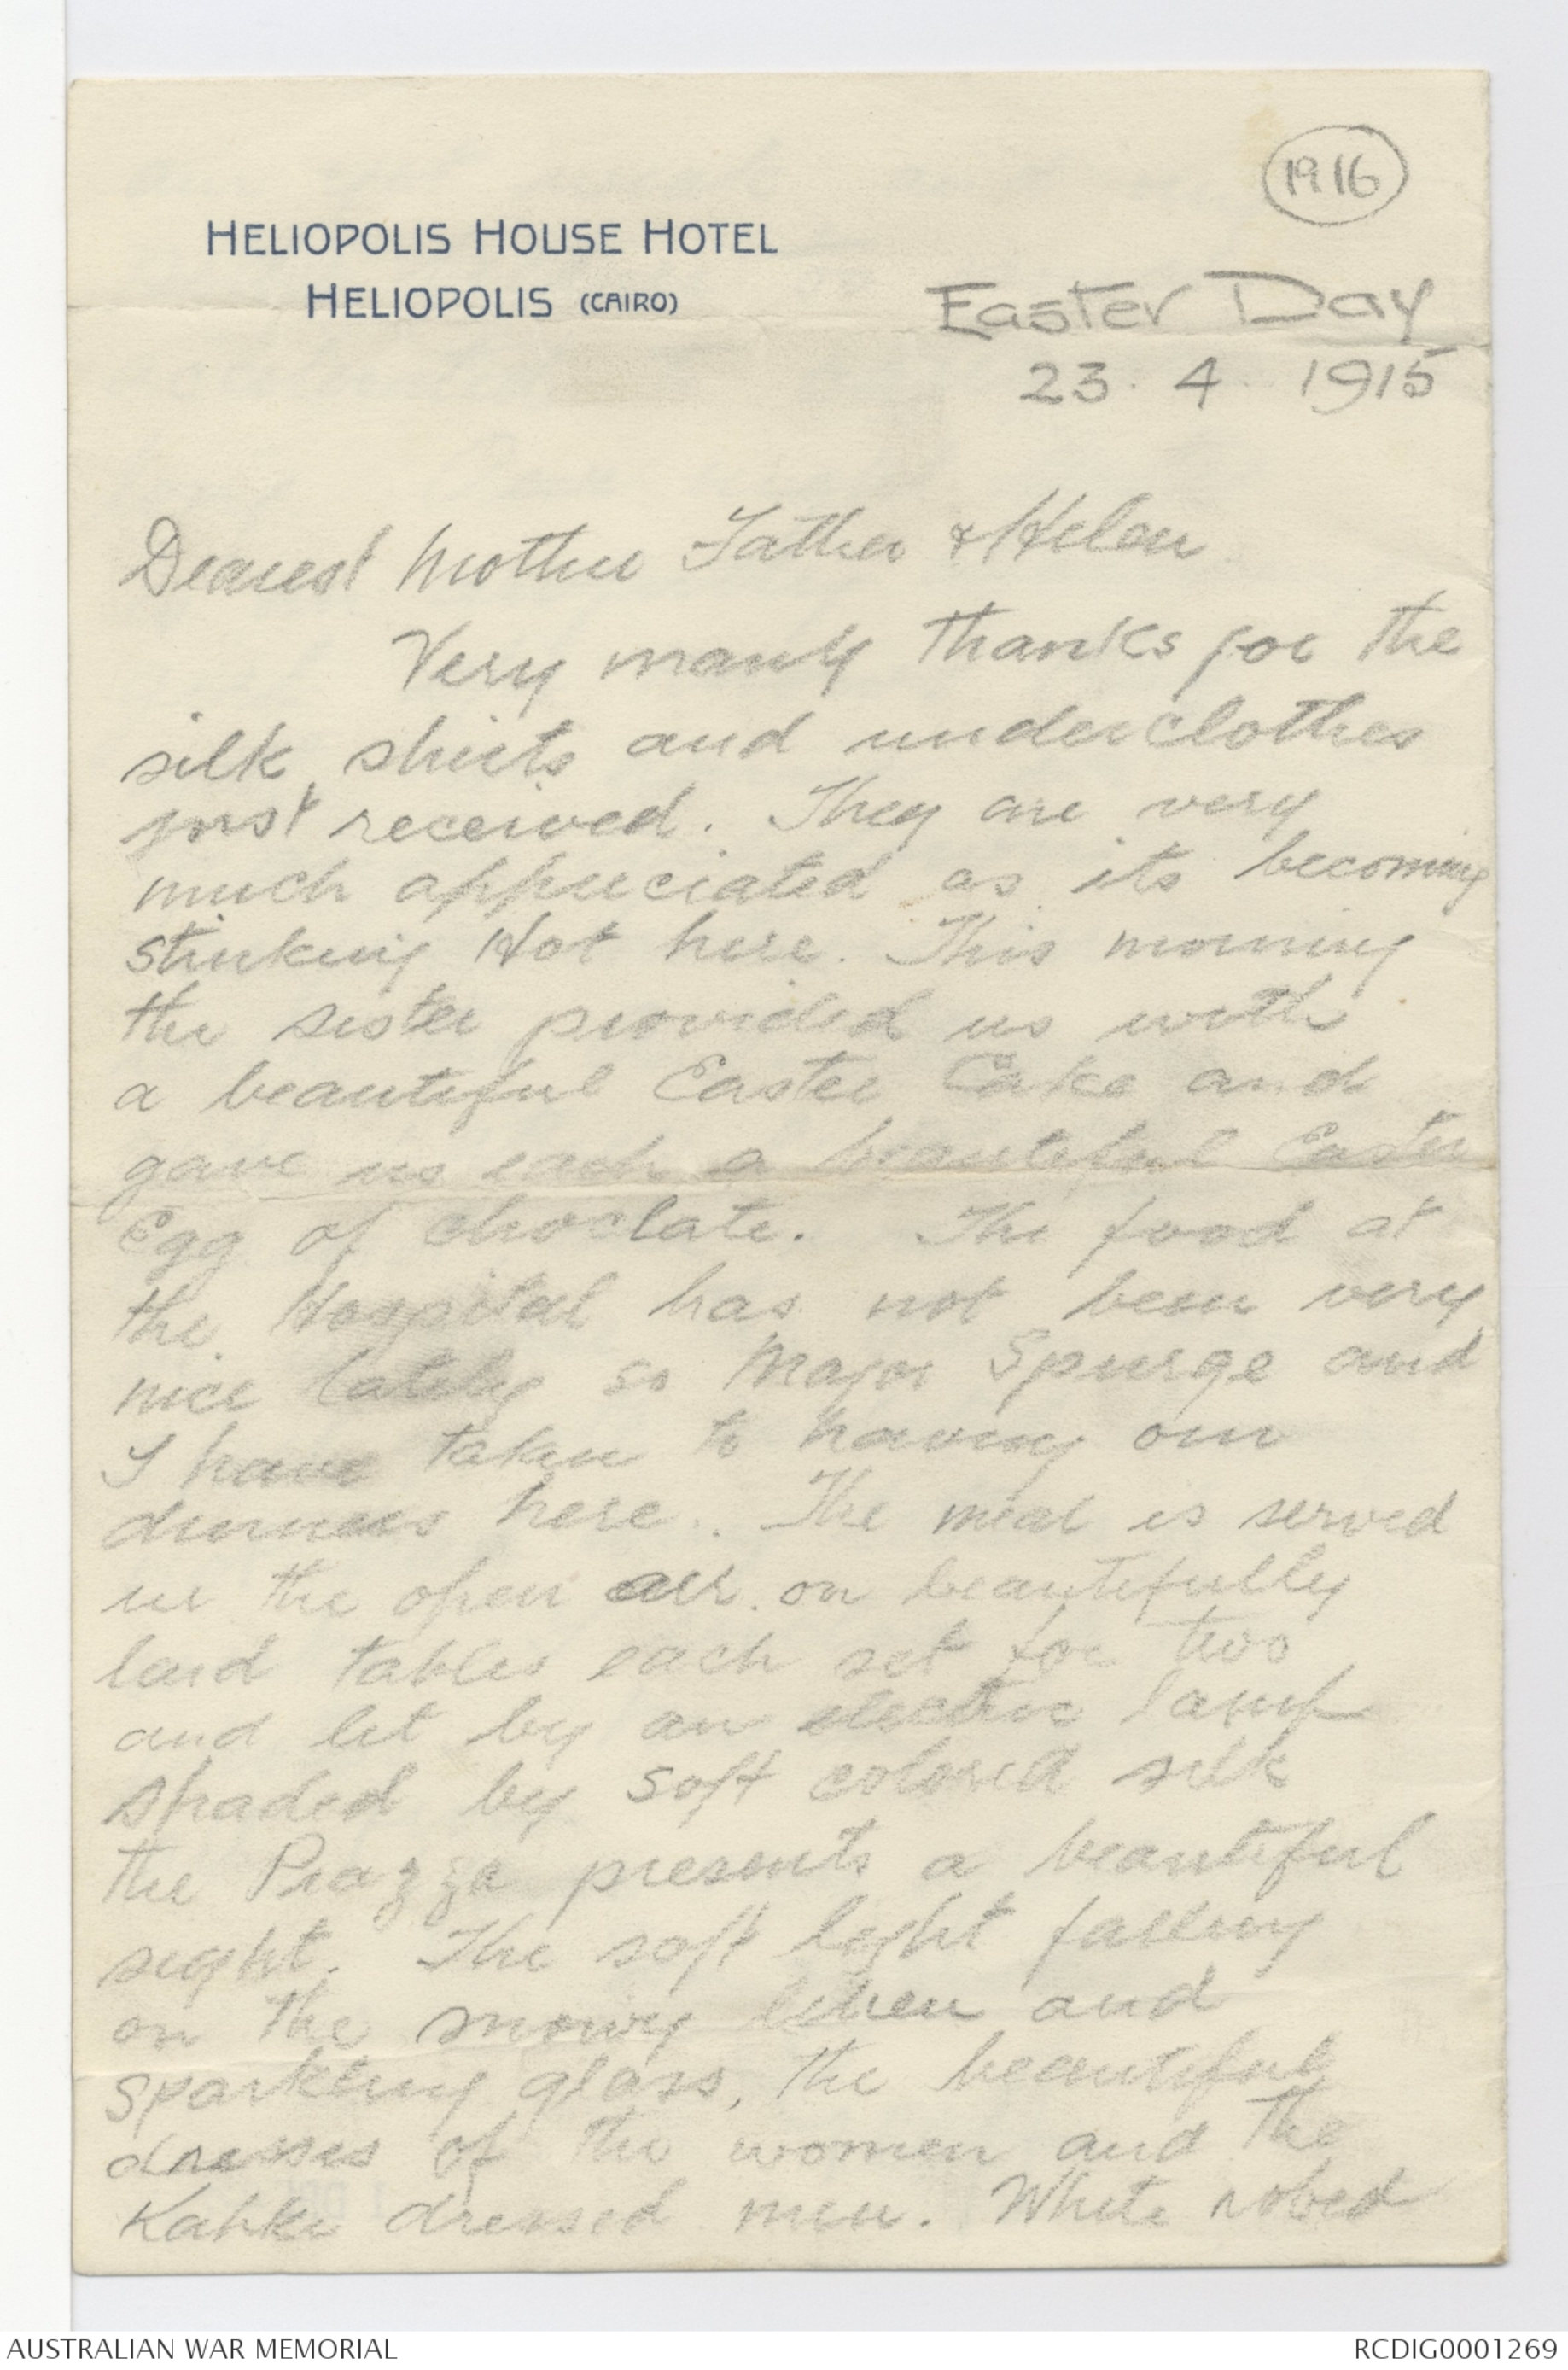 1916
HELIOPOLIS HOUSE HOTEL
HELIOPOLIS (CAIRO)
Easter Day
23. 4. 1915
Dearest Mother Father & Helen
Very many thanks for the
silk shirts and underclothes
just received. They are very
much appreciated as its becoming
stinking Hot here. This morning
the sister provided us with
a beautiful Easter Cake and
gave us each a beautiful Easter
Egg of choclate. The food at
the Hospital has not been very
nice lately so Major Spurge and
I have taken to having our
dinners here. The meal is served
in the open air on beautifully
laid tables each set for two
and lit by an electric lamp
shaded by soft colored silk
the Piazza presents a beautiful
sight. The soft light falling
on the snowy linen and
sparkling glass, the beautiful
dresses of the women and the
Kahki dressed men. White robed
AUSTRALIAN WAR MEMORIAL
RCDIG0001269